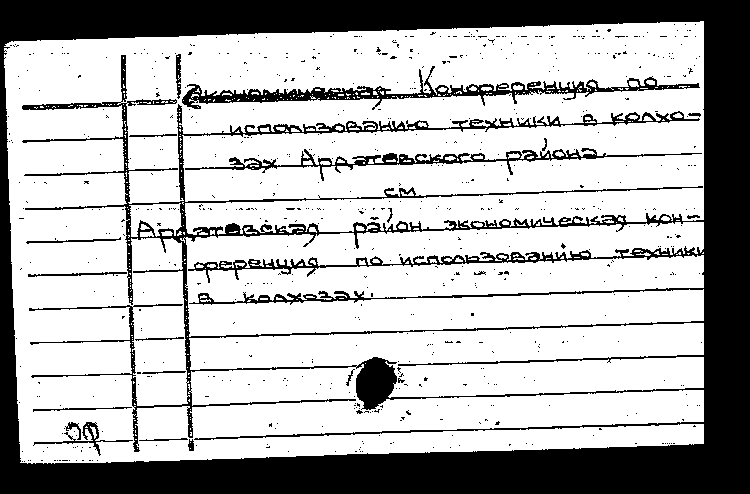 Экономическая Конференция по
использованию техники в колхо-
зах Ардатовского района.
см.
Ардатовская район. экономическая кон-
ференция по использованию техники
в колхозах.
ор